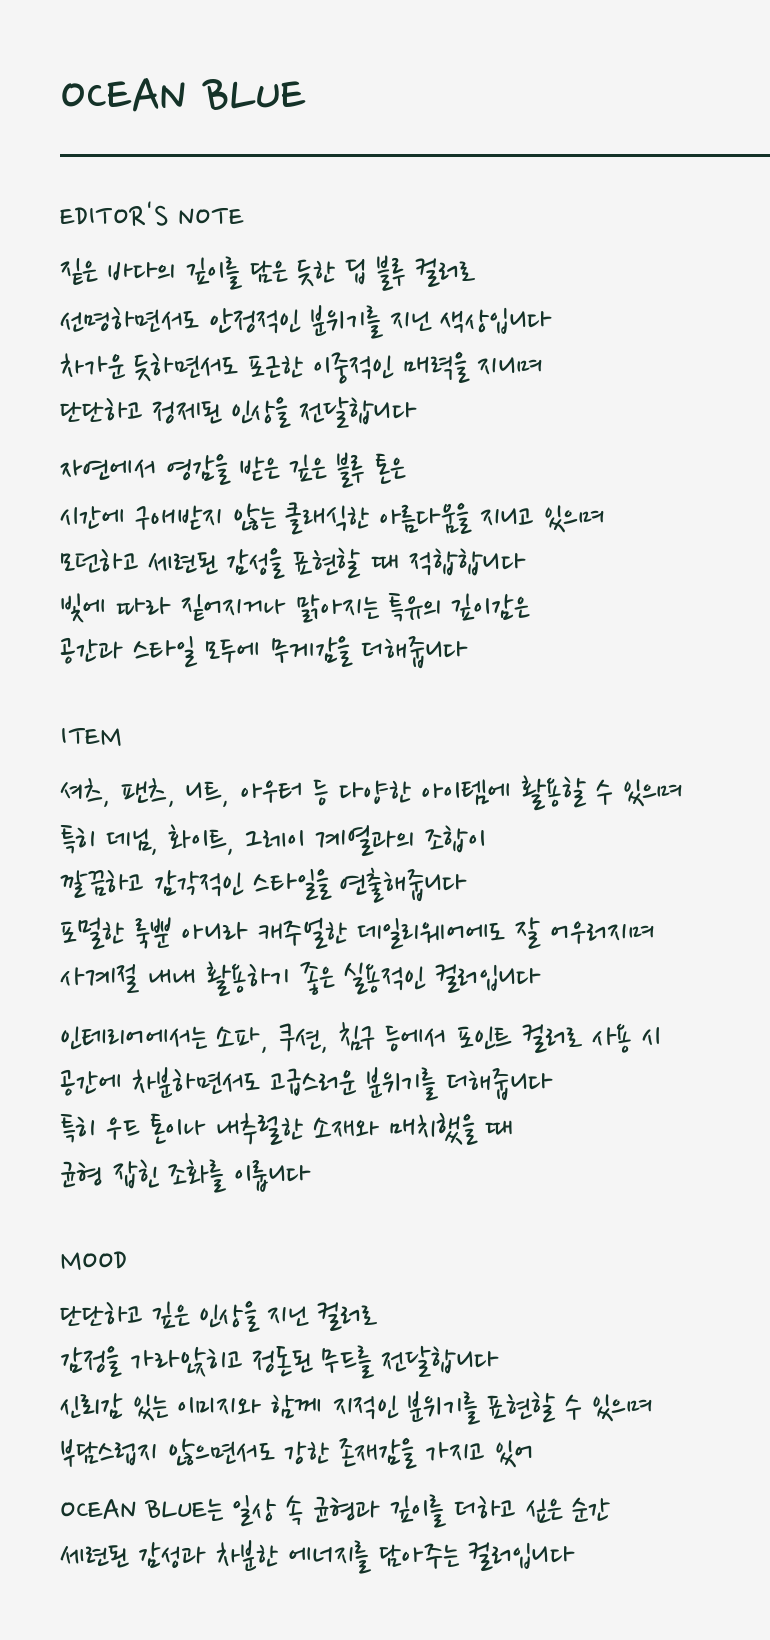 OCEAN BLUE
EDITOR'S NOTE
짙은 바다의 깊이를 담은 듯한 딥 블루 컬러로
선명하면서도 안정적인 분위기를 지닌 색상입니다
차가운 듯하면서도 포근한 이중적인 매력을 지니며
단단하고 정제된 인상을 전달합니다
자연에서 영감을 받은 깊은 블루 톤은
시간에 구애받지 않는 클래식한 아름다움을 지니고 있으며
모던하고 세련된 감성을 표현할 때 적합합니다
빛에 따라 짙어지거나 맑아지는 특유의 깊이감은
공간과 스타일 모두에 무게감을 더해줍니다
ITEM
셔츠, 팬츠, 니트, 아우터 등 다양한 아이템에 활용할 수 있으며
특히 데님, 화이트, 그레이 계열과의 조합이
깔끔하고 감각적인 스타일을 연출해줍니다
포멀한 룩뿐 아니라 캐주얼한 데일리웨어에도 잘 어우러지며
사계절 내내 활용하기 좋은 실용적인 컬러입니다
인테리어에서는 소파, 쿠션, 침구 등에서 포인트 컬러로 사용 시
공간에 차분하면서도 고급스러운 분위기를 더해줍니다
특히 우드 톤이나 내추럴한 소재와 매치했을 때
균형 잡힌 조화를 이룹니다
MOOD
단단하고 깊은 인상을 지닌 컬러로
감정을 가라앉히고 정돈된 무드를 전달합니다
신뢰감 있는 이미지와 함께 지적인 분위기를 표현할 수 있으며
부담스럽지 않으면서도 강한 존재감을 가지고 있어
OCEAN BLUE는 일상 속 균형과 깊이를 더하고 싶은 순간
세련된 감성과 차분한 에너지를 담아주는 컬러입니다